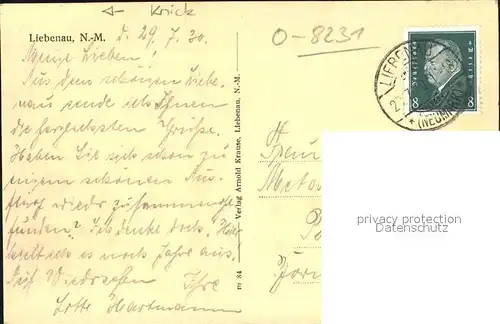 Knick
Liebenau, N.-M.
d. 29. 7. 30.
0-8231
Meine Lieben!
Aus dem schönen Liebe-
nau sende ich Ihnen
die herzlichsten Grüße.
Haben Sie sich schon zu
einem schönen Aus-
flug wieder zusammenge-
funden? Ich denke doch.
es noch Jahre aus.
Auf Wiedersehen Ihre
Lotte Hartmann
Verlag Arnold Krause, Liebenau, N.-M.
rv 84
LIEBENAU
(NEUMARK)
Deutsches Reich
8 8
privacy protection
Datenschutz